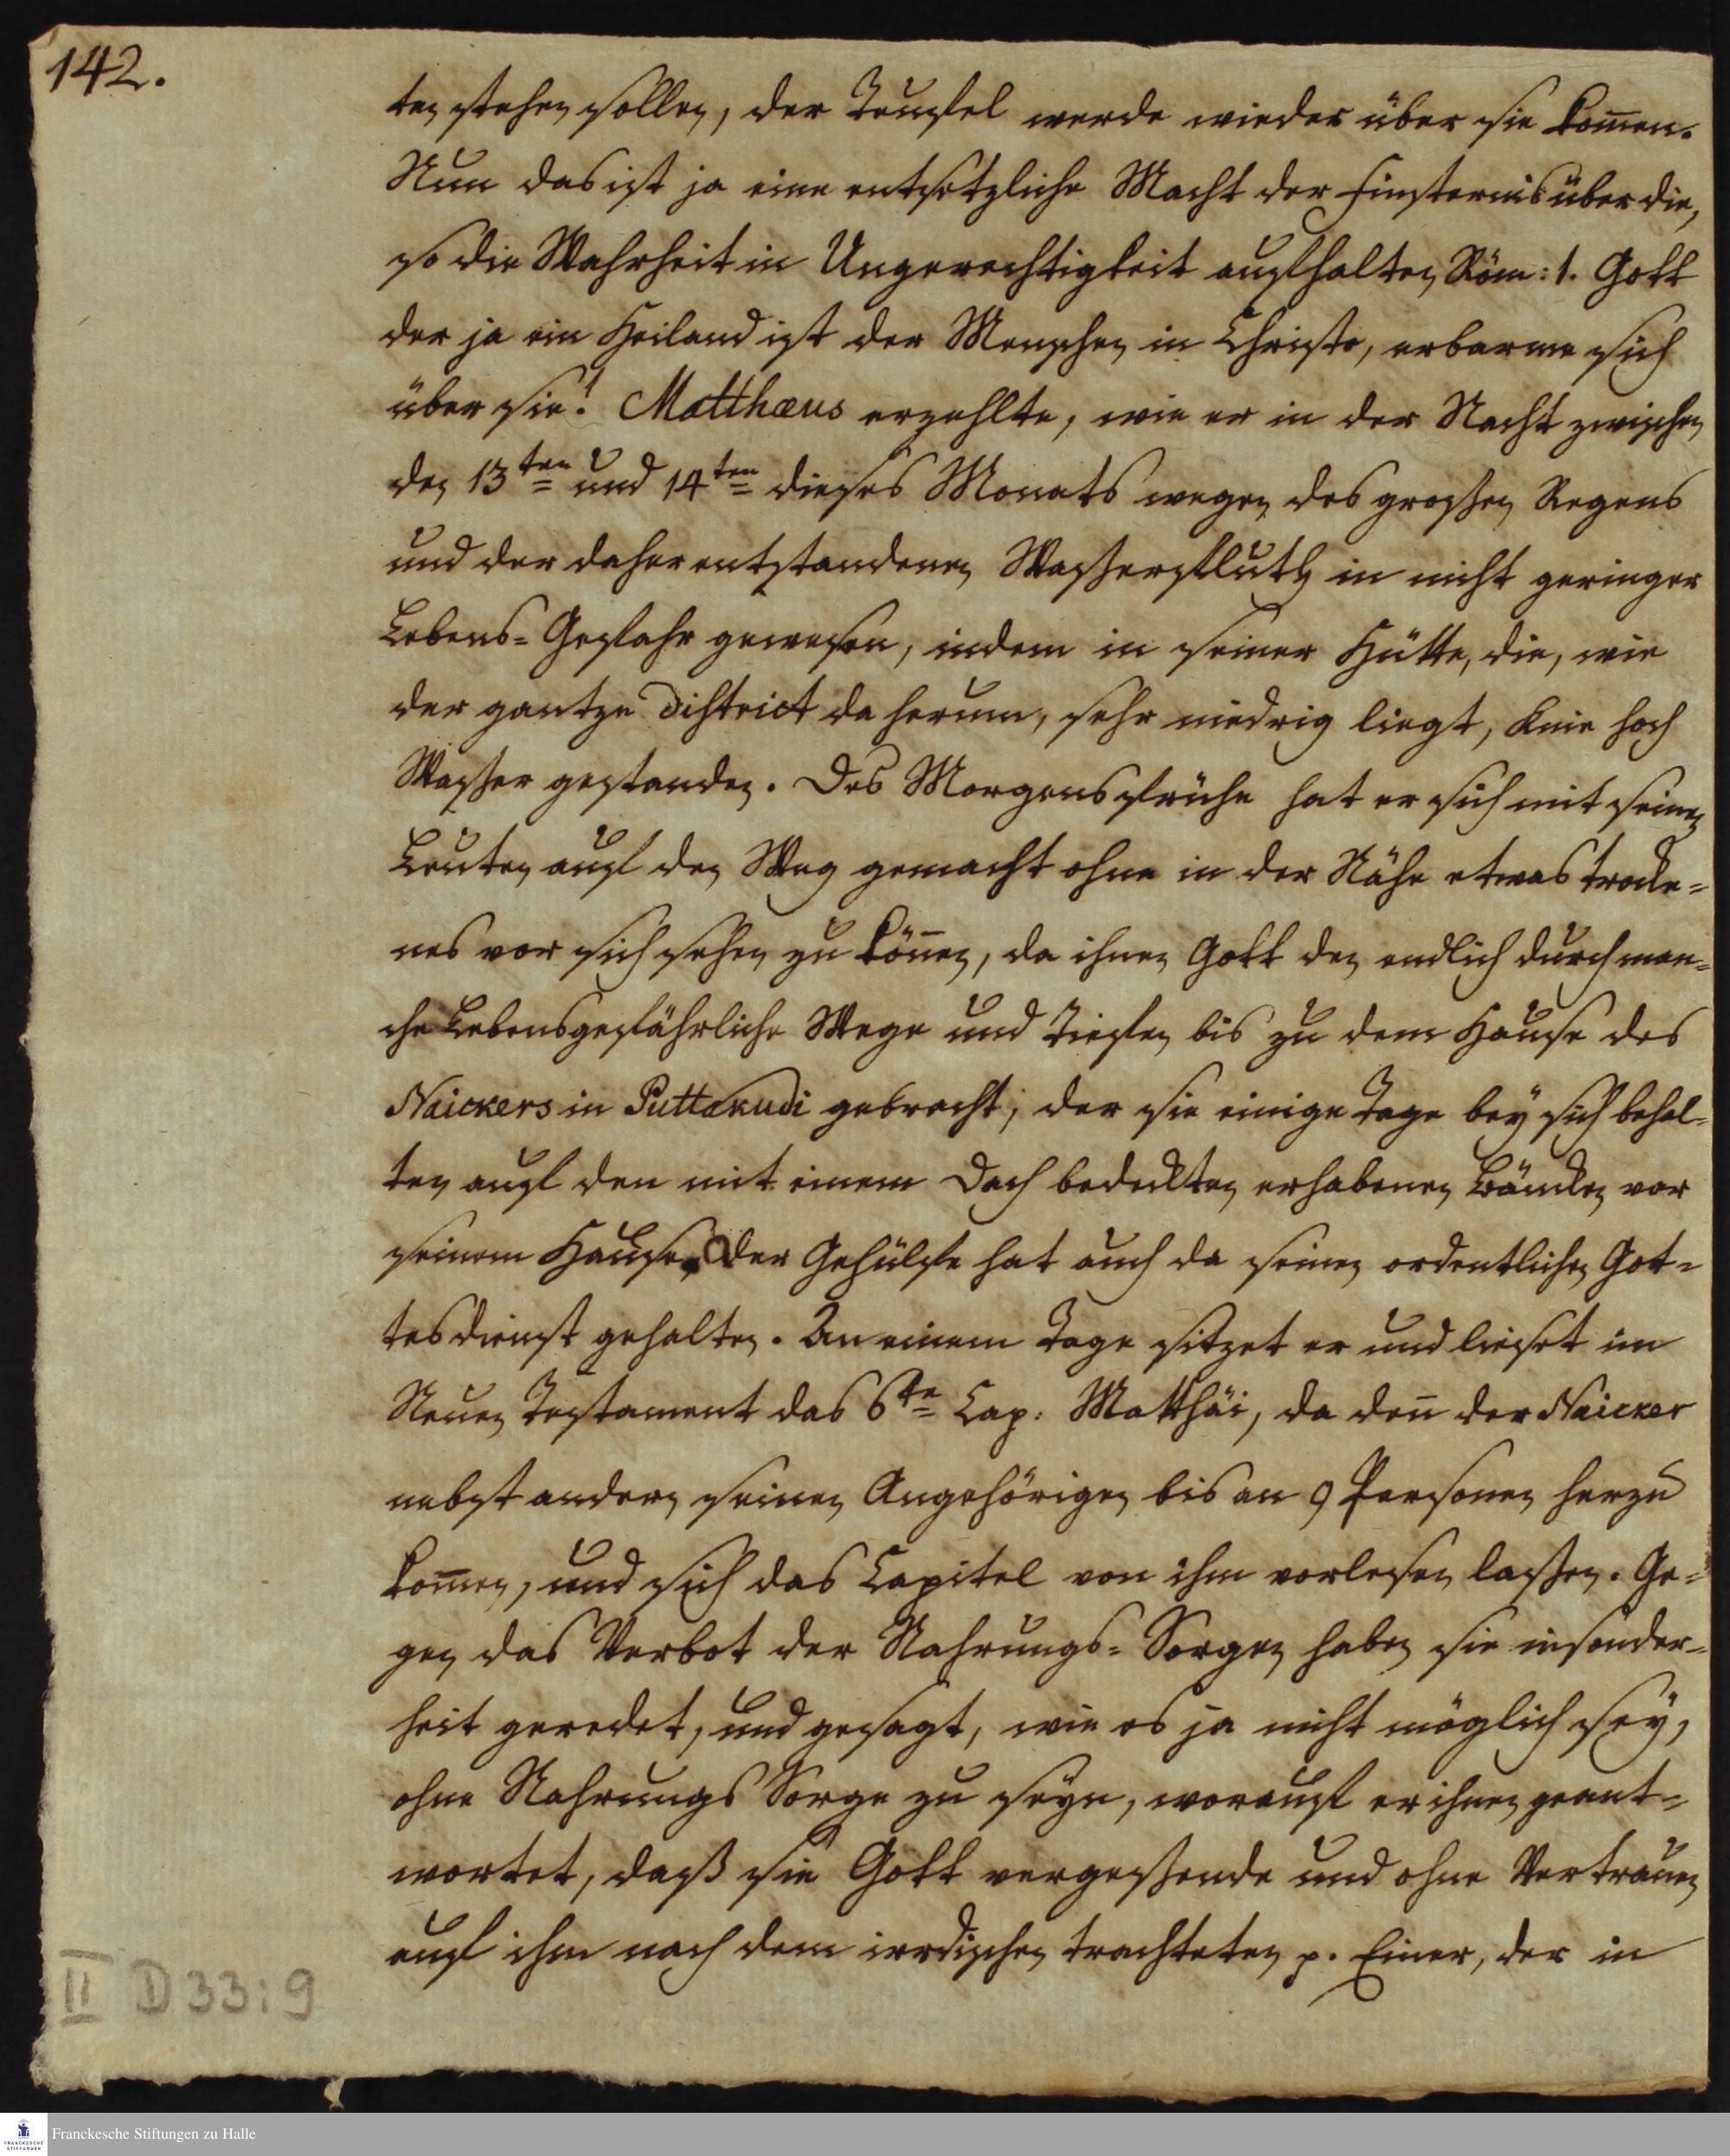 142.
ten stehen sollen, der Teufel werde wieder über sie kom̄en.
Nun das ist ja eine entsetzliche Macht der Finsternis über die,
so die Wahrheit in Ungerechtigkeit aufhalten Röm: 1. Gott
der ja ein Heiland ist der Menschen in Christo, erbarme sich
über sie! Matthæus erzehlte, wie er in der Nacht zwischen
den 13ten und 14ten dieses Monats wegen des großen Regens
und der daher entstandenen Waßerfluth in nicht geringer
Lebens=Gefahr gewesen, indem in seiner Hütte, die, wie
der gantze District da herum, sehr niedrig liegt, Knie hoch
Waßer gestanden. Des Morgens frühe hat er sich mit seinen
Leuten auf den Weg gemacht ohne in der Nähe etwas trocke=
nes vor sich sehen zu kön̄en, da ihnen Gott den endlich durch man=
che Lebensgefährliche Wege und Tiefen bis zu dem Hause des
Naickers in Puttakudi gebracht, der sie einige Tage bey sich behal=
ten auf den mit einem Dach bedeckten erhabenen Bäncken vor
seinem Hause. Der Gehülfe hat auch da seinen ordentlichen Got=
tesdienst gehalten. An einem Tage sitzet er und lieset im
Neuen Testament das 6te Cap: Matthäi, da den̄ der Naicker
nebst andern seinen Angehörigen bis an 9 Personen herzu
kom̄en, und sich das Capitel von ihm vorlesen laßen. Ge=
gen das Verbot der Nahrungs=Sorgen haben sie insonder=
heit geredet, und gesagt, wie es ja nicht möglich sey,
ohne Nahrungs Sorge zu seyn, worauf er ihnen geant=
wortet, daß sie Gott vergeßende und ohne Vertrauen
auf ihm nach dem irrdischen trachteten p. Einer, der in
II D 33:9
FRANCKESCHE STIFTUNGEN
Franckesche Stiftungen zu Halle